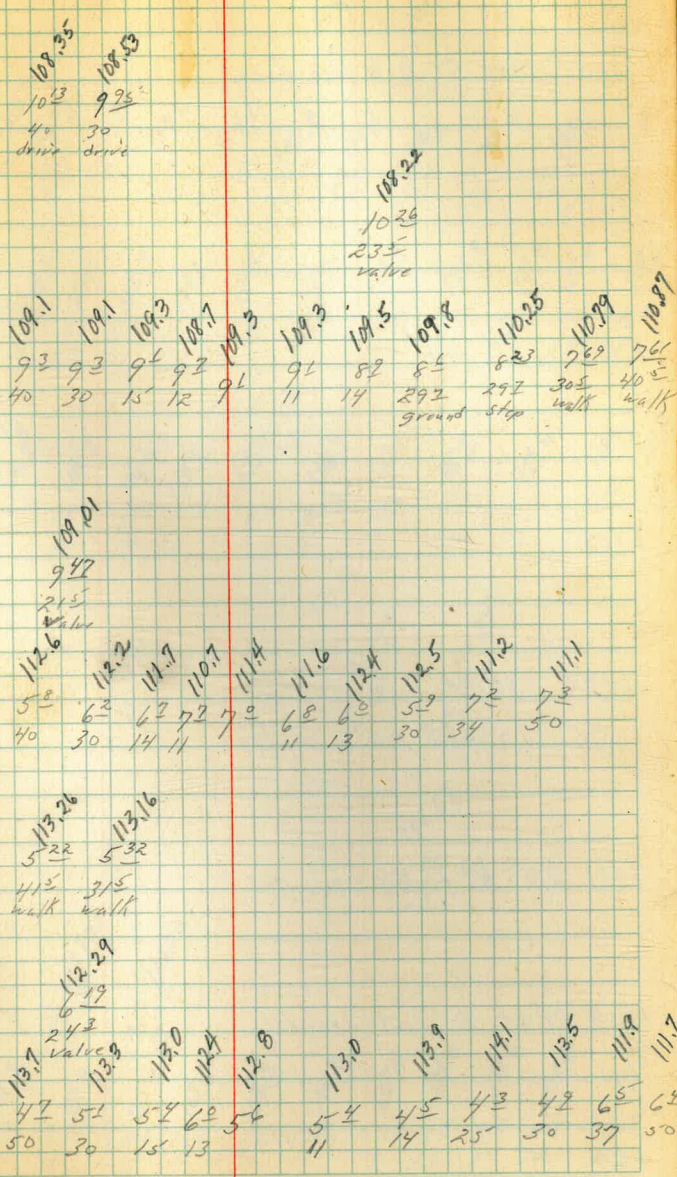 108.35 108.53
10 13 9 95
40 30
drive drive
108.22
10 26
23 5
valve
109.1 109.1 109.3 108.7 109.3 109.3 109.5 109.8 110.25 110.79 110.87
9 3 9 3 9 1 9 7 9 1 9 1 8 9 8 6 8 23 7 69 7 61
40 30 15 12 11 14 29 7 29 7 30 5 40 5
ground step walk walk
109.01
9 47
21 5
valve
112.6 112.2 111.7 110.7 111.4 111.6 112.4 112.5 111.2 111.1
5 8 6 2 6 7 7 7 7 0 6 8 6 0 5 9 7 2 7 3
40 30 14 11 11 13 30 34 50
113.26 113.16
5 22 5 32
41 5 31 5
walk walk
112.29
6 19
24 3
valve
113.7 113.3 113.0 112.4 112.8 113.0 113.9 114.1 113.5 111.9 111.7
4 7 5 1 5 4 6 0 5 6 5 4 4 5 4 3 4 9 6 5
50 30 15 13 11 14 25 30 37 50